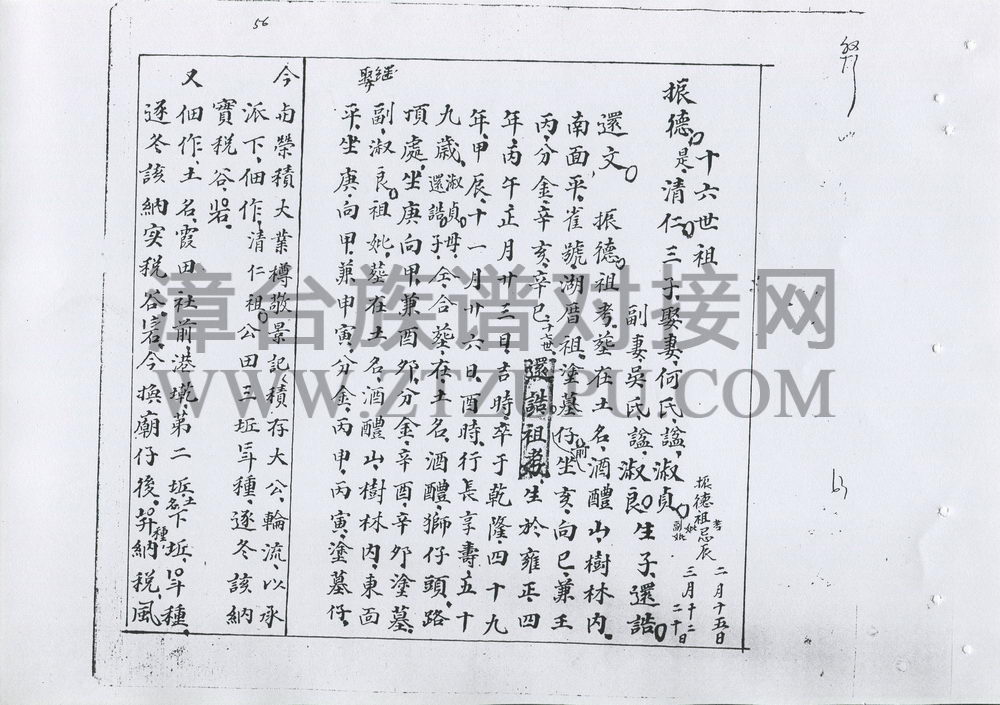 56
十六世祖
振德是清仁三子娶妻何氏諡淑貞
副妻吳氏諡淑良生子還誥
振德祖考忌辰二月十五日
妣三月十二日
副妣二十日
還文 振德祖考墓在土名酒醴山樹林内
南面平崔號湖厝祖塗墓仔前坐亥向巳兼壬
丙分金辛亥辛巳十七世還誥祖考生於雍正四
年丙午正月廿三日吉時卒于乾隆四十九
年甲辰十一月廿六日酉時行長享壽五十
九歲淑貞母還誥子仝合墓在土名酒醴獅仔頭路
項處坐庚向甲兼酉夘分金辛酉辛夘塗墓
繼娶副淑良祖妣墓在土名酒醴山樹林内東面
平坐庚向甲兼申寅分金丙申丙寅塗墓仔
今卣榮積大業樽敬景記積存大公輪流以承
派下佃作清仁祖公田三坵 種逐冬該納
實税谷
又佃作土名霞田社前港墘第二坵土名下坵 種
逐冬該納实税谷 今換廟仔後 種納税風
漳台族谱对接网
WWW.ZTZUPU.COM